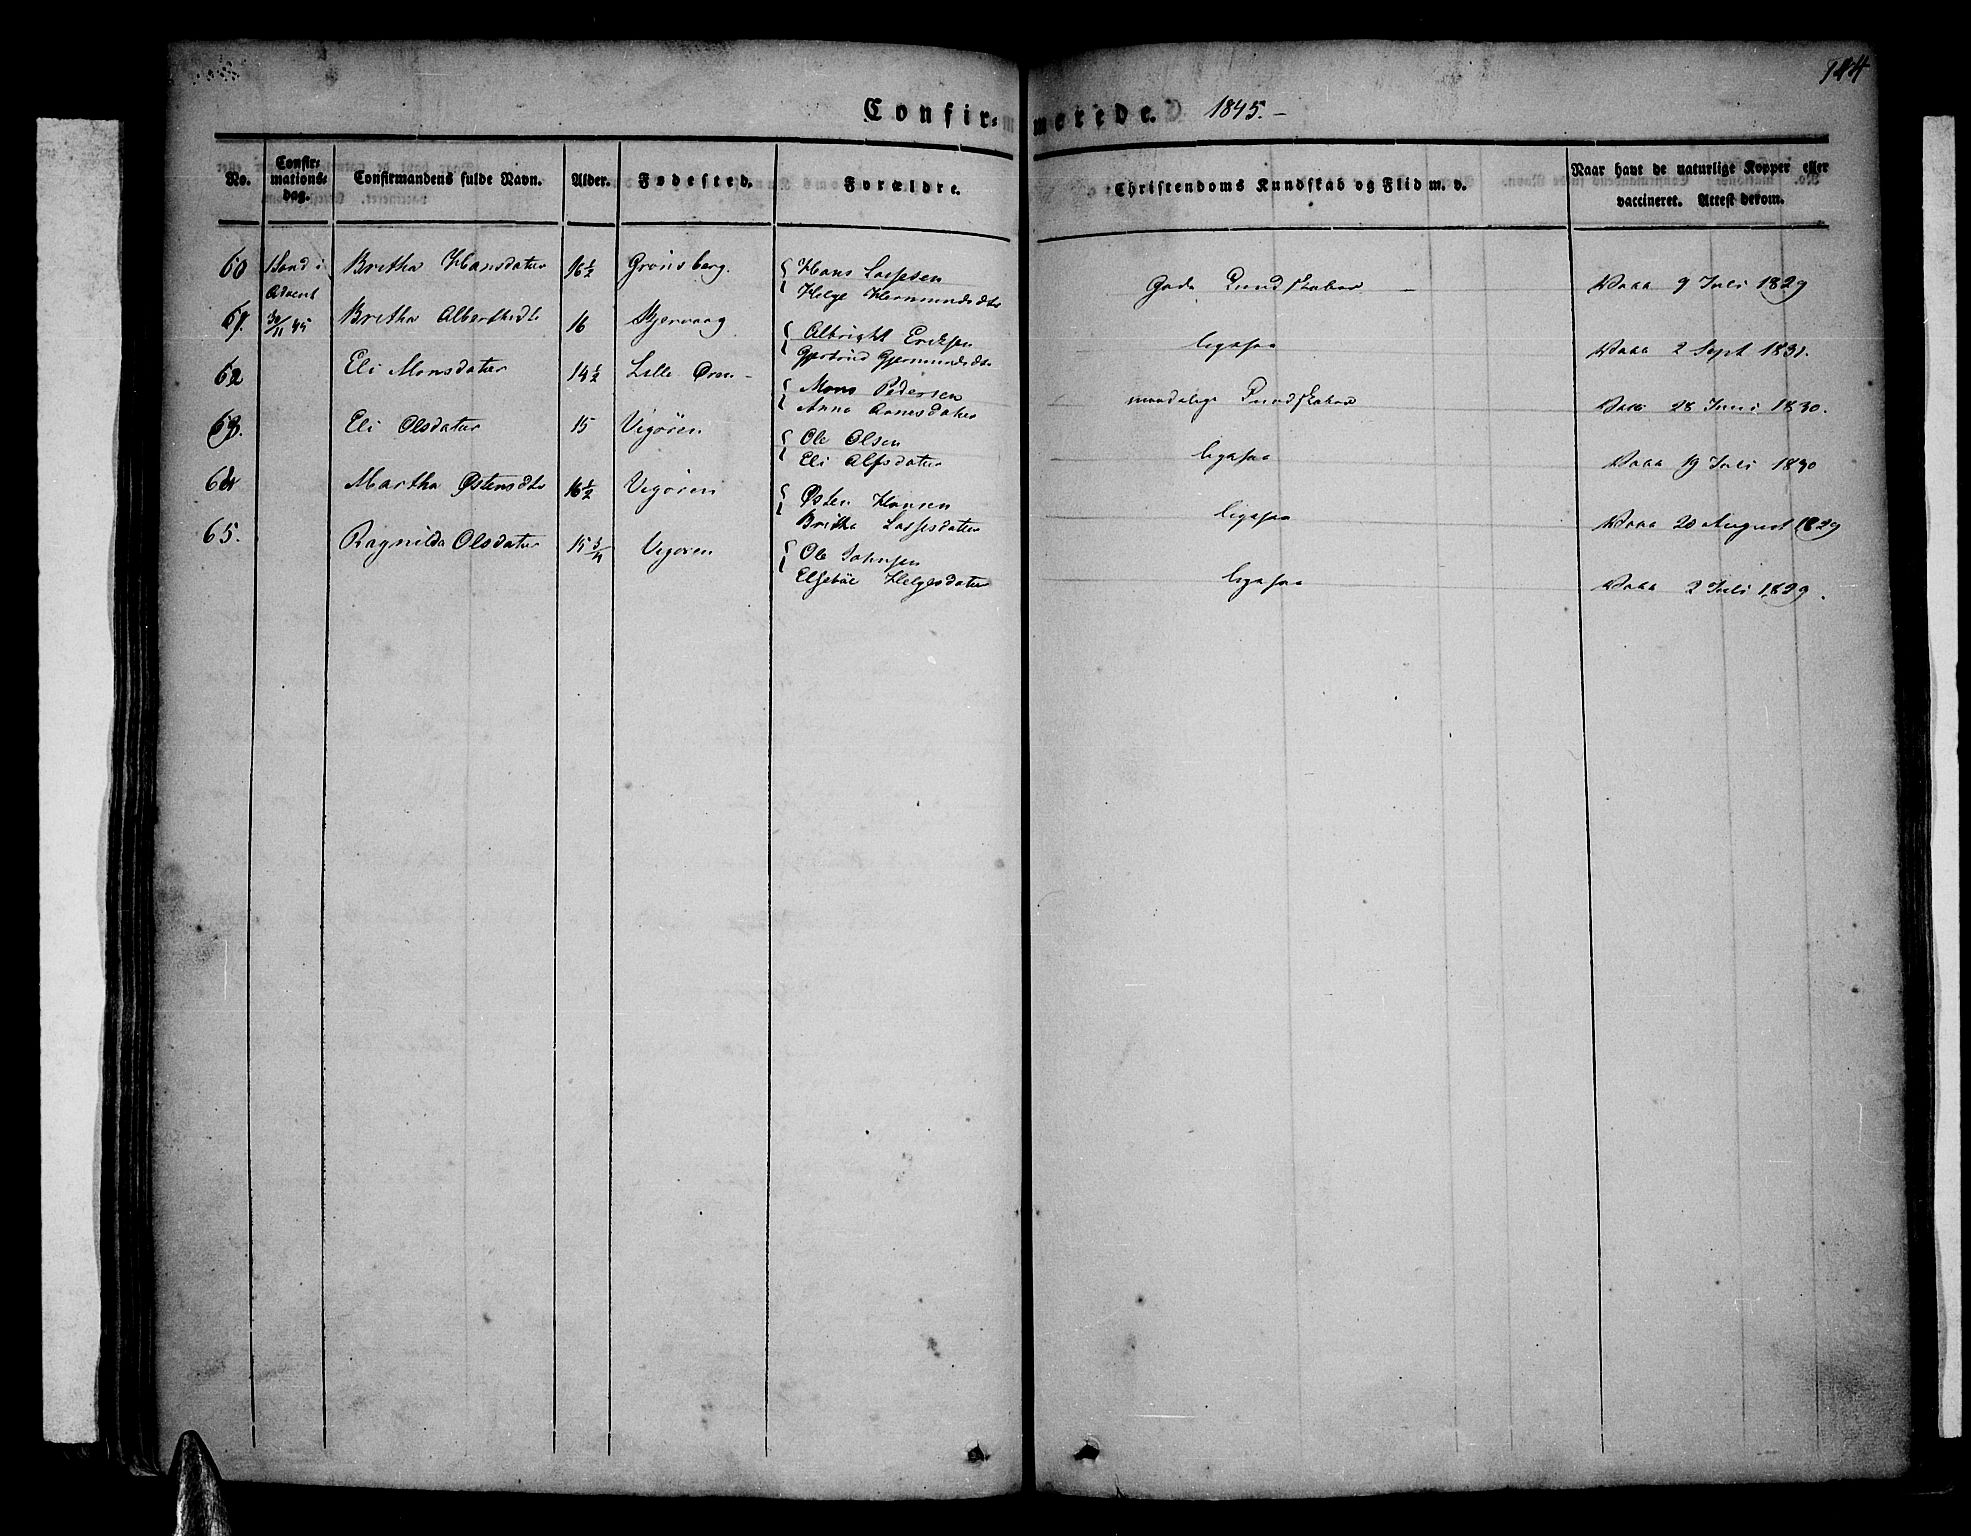 144
Confirmerede. 1845.-
No. Confirmationsdag. Confirmandens fulde Navn. Alder. Fødested. Forældre. Christendoms Kundskab og Flid m. v. Naar havt de naturlige Kopper eller vaccineret. Attest derom.
60 1 Sønd i Advent Brethe Hansdatter 16½ Grønsberg. Hans Lassesen Gode Kundskaber Vacc 9 Juli 1829
Helge Hermundsdtr
61. 30/11 45 Brethe Alberthsdtr 16 Albright Eriksen ligesaa Vacc 2 Sept 1831.
Gjertrud Gjermundsdtr
62 Eli Monsdatter 14½ Lille Øren Mons Pedersen maadelige Kundskaber Vacc 28 Juni 1830.
Anna Arnesdatter
63. Eli Olsdatter 15 Vigøren Ole Olsen ligesaa Vacc 19 Juli 1830
Eli Alfsdatter
64 Martha Østensdtr 16½ Vigøren Østen Hansen ligesaa Vacc 20 August 1829
Brithe Lassesdatter
65. Ragnilda Olsdatter 15¾ Vigøren Ole Johnsen ligesaa Vacc 2 Juli 1829.
Elsebøe Helgesdatter